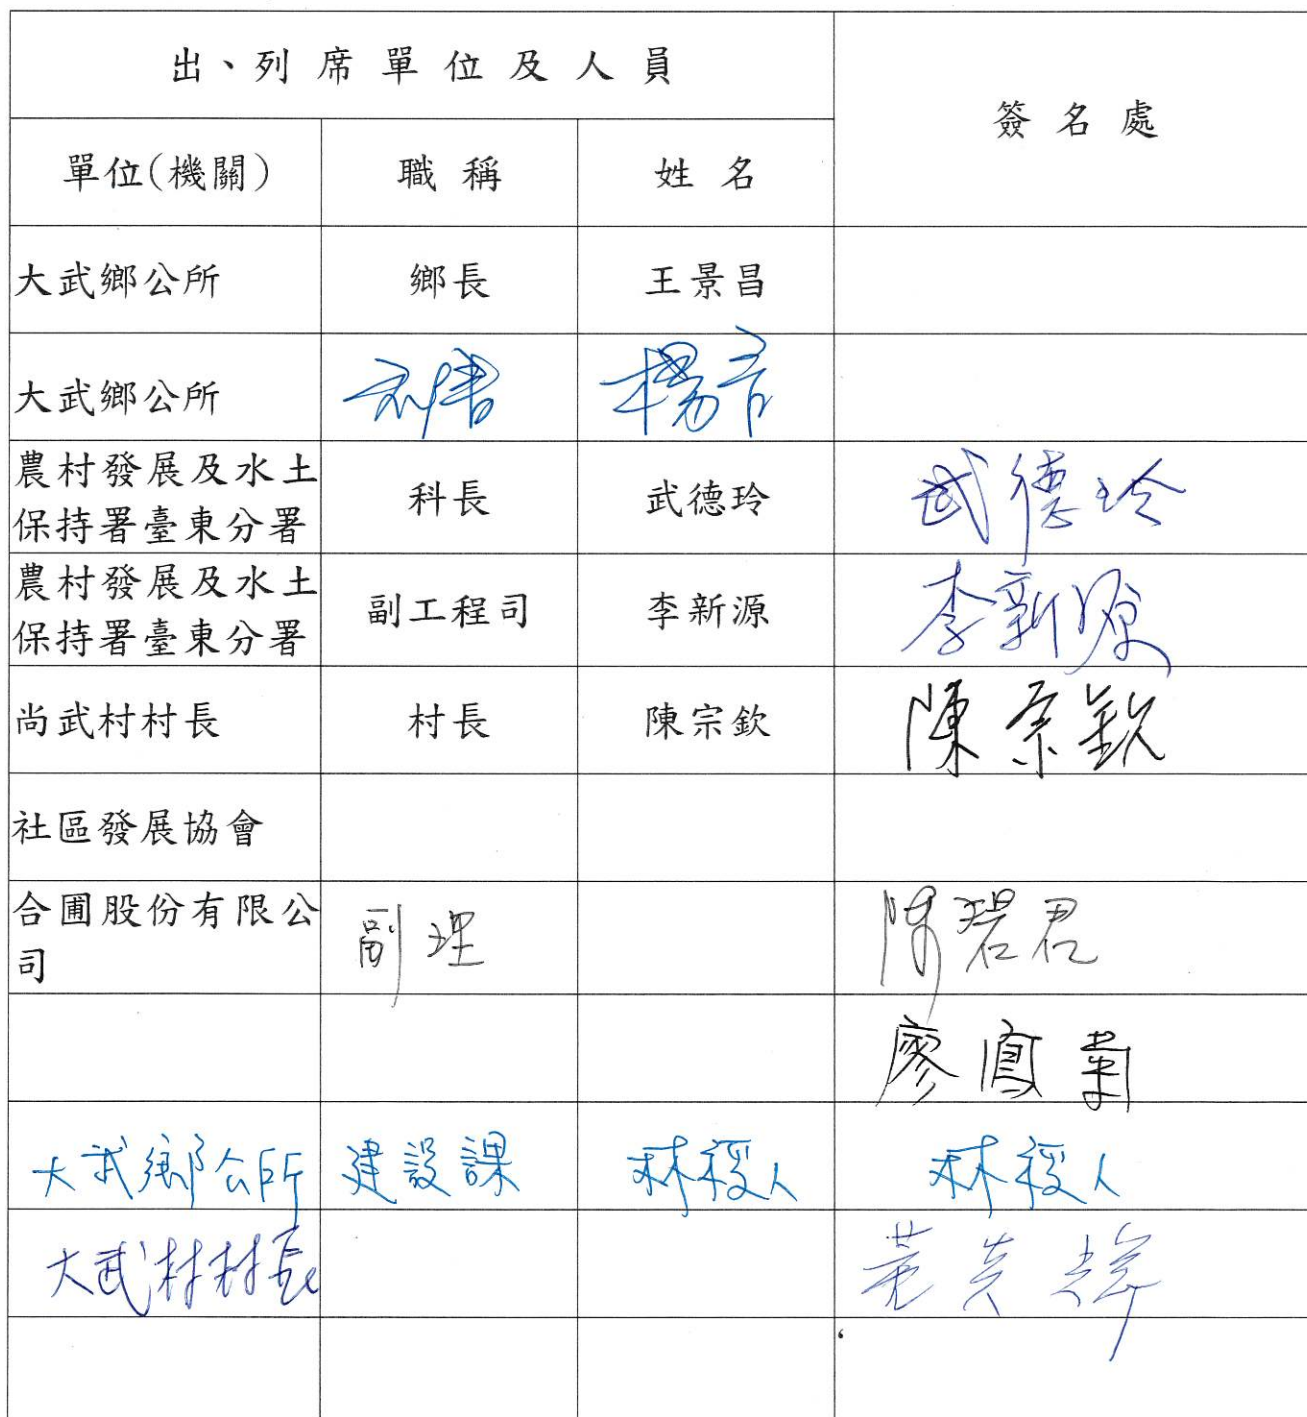 出、列席單位及人員
簽名處
單位(機關) 職稱 姓名
大武鄉公所 鄉長 王景昌
大武鄉公所 秘書
農村發展及水土
保持署臺東分署 科長 武德玲 武德玲
農村發展及水土
保持署臺東分署 副工程司 李新源 李新源
尚武村村長 村長 陳宗欽 陳宗欽
社區發展協會
合圃股份有限公
司 副理 陳碧君
廖鳳
大武鄉公所 建設課 林稷人 林稷人
大武村村長